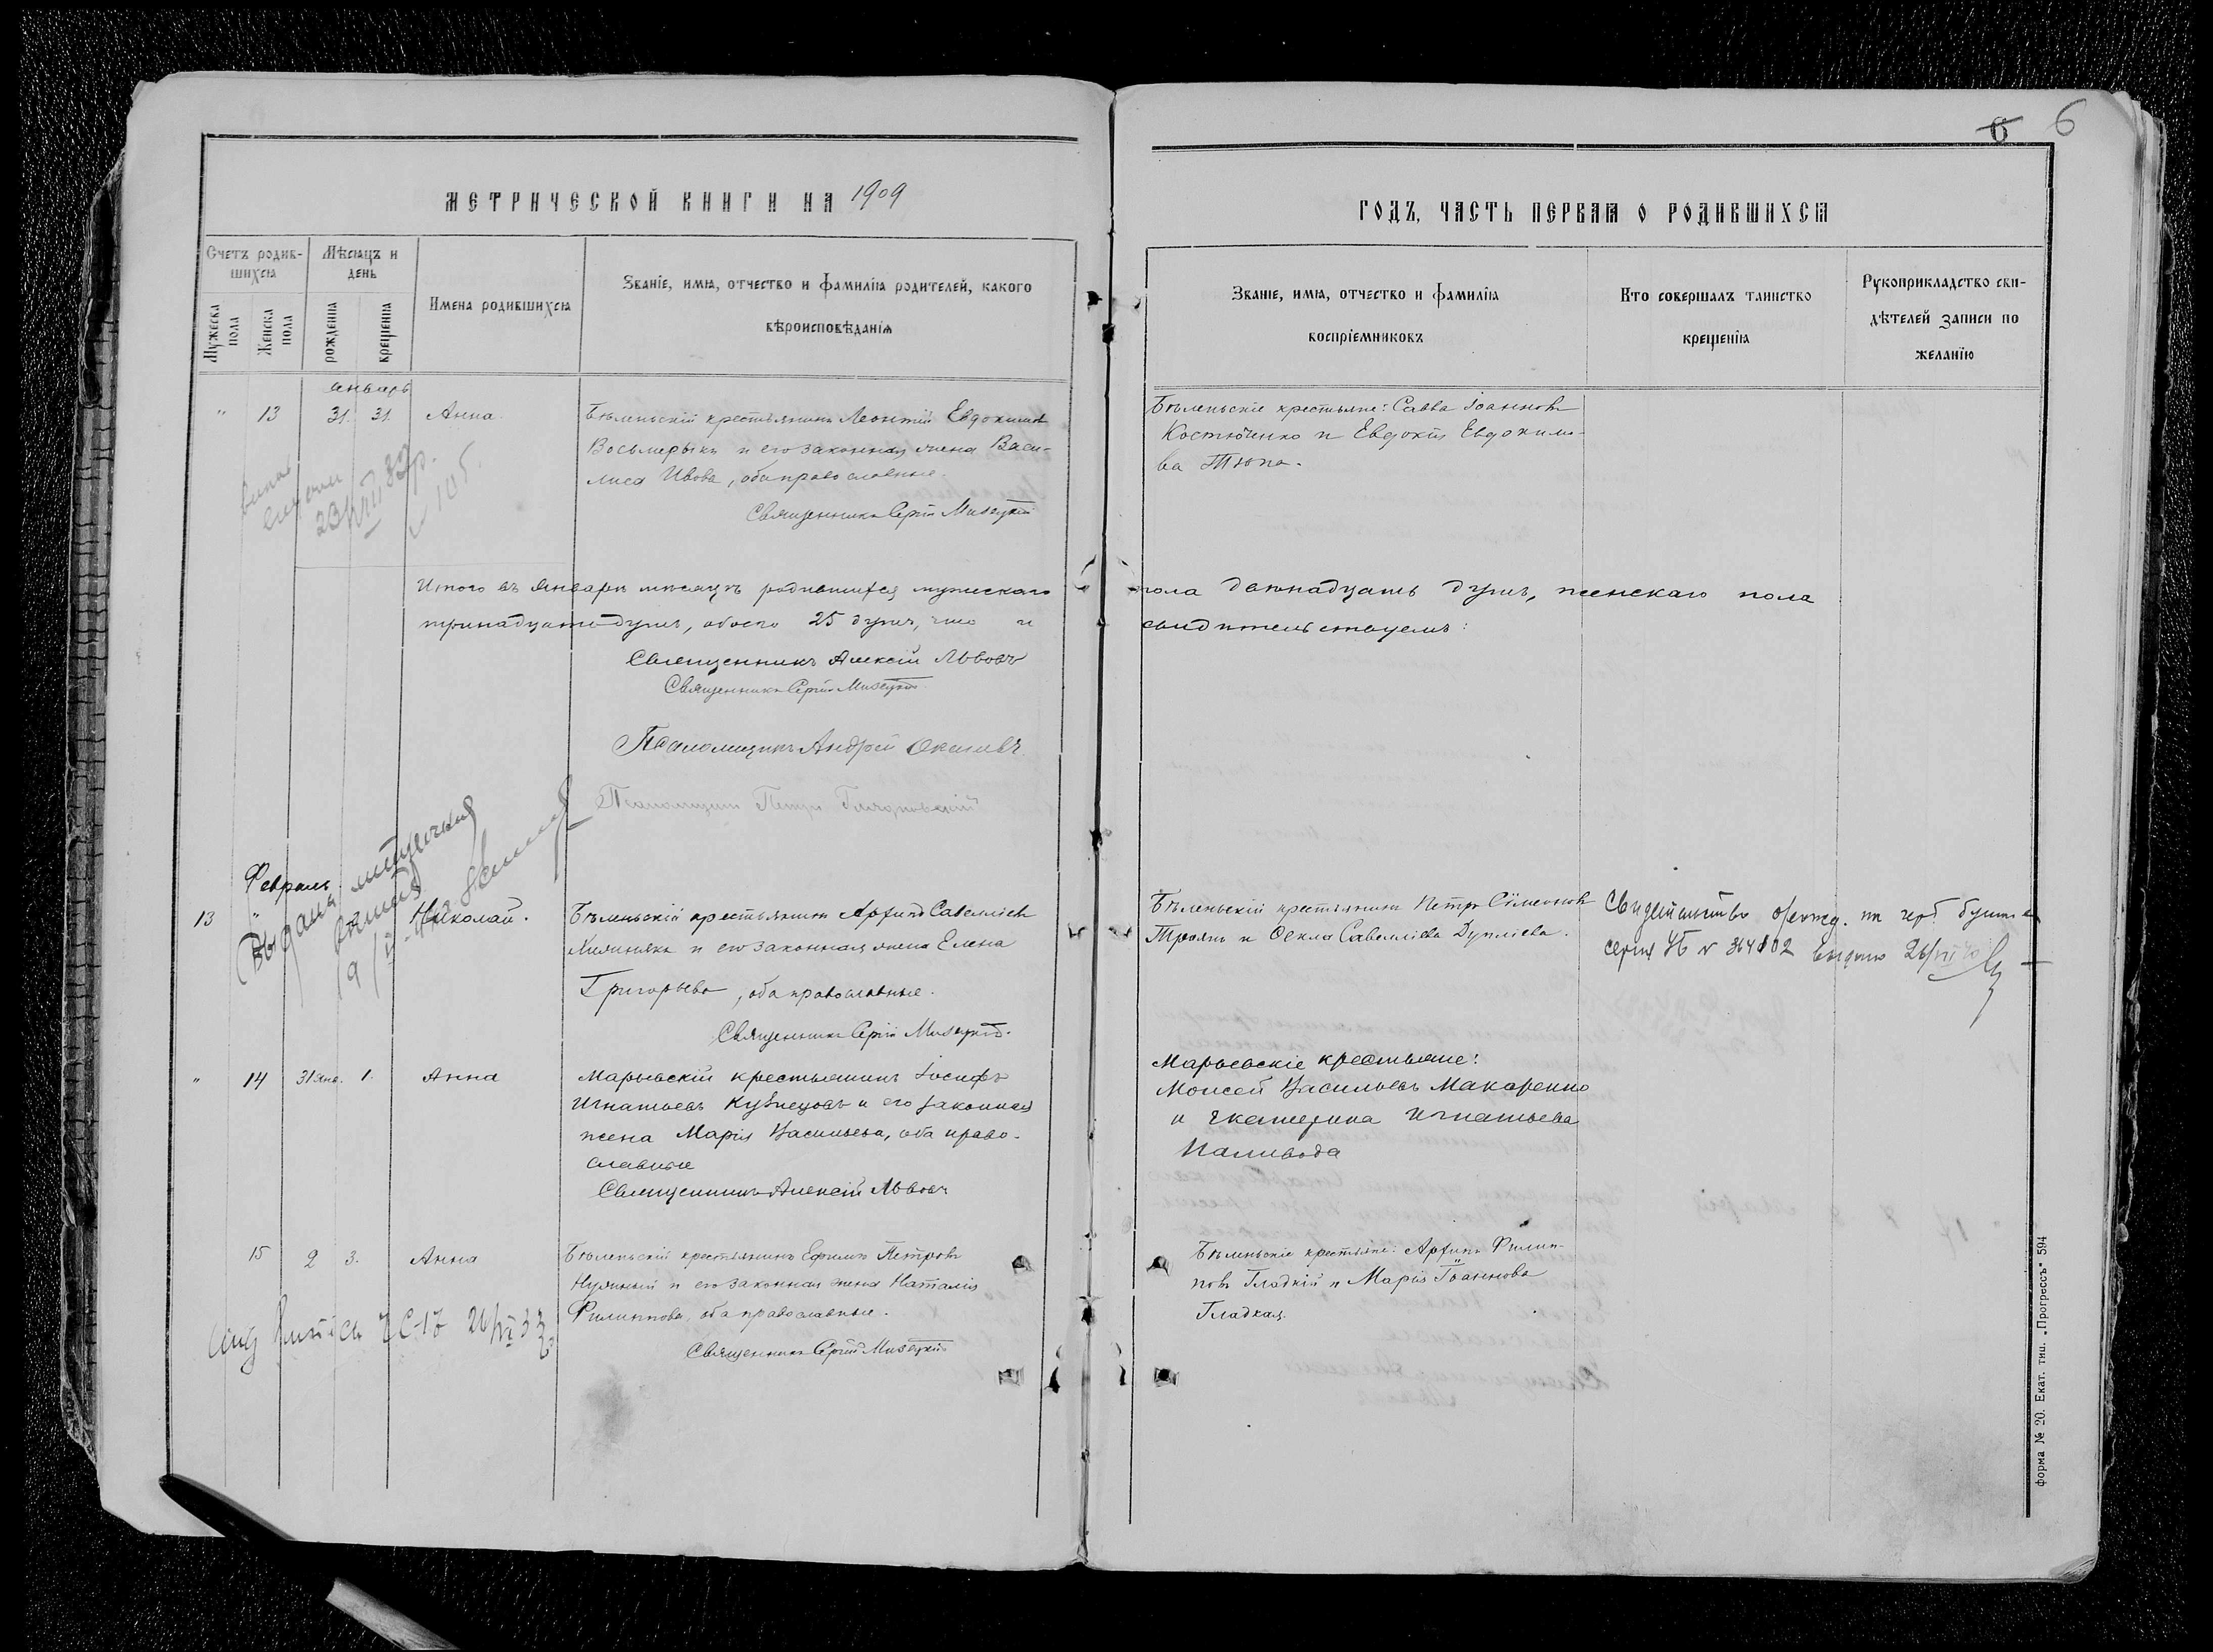 6 6
МЕТРИЧЕСКОЙ КНИГИ НА 1909
ГОДЪ, ЧАСТЬ ПЕРВАЯ О РОДИВШИХСЯ
Счетъ родив-
шихся
Мѣсяцъ и
день
Мужеска
пола
Женска
пола
рожденія
крещенія
Имена родившихся
Званіе, имя, отчество и фамилія родителей, какого
вѣроисповѣданія
Званіе, имя, отчество и фамилія
воспріемниковъ
Кто совершалъ таинство
крещенія
Рукоприкладство сви-
дѣтелей записи по
желанію
январь
" 13 31. 31. Анна.
Бѣленьскій крестьянинъ Леонтій Евдокимовъ
Восьмерыкъ и его законная жена Васи-
лиса Ивова, оба православные.
Священникъ Сергій Мизецкій
Бѣленьскіе крестьяне: Савва Іоанновъ
Костюченко и Евдокія Евдокимо-
ва Тюпа.
23/VIII 39 р.
Итого въ январѣ мѣсяцѣ родившихся мужескаго
пола двѣнадцать душъ, женскаго пола
тринадцать душъ, обоего 25 душъ, что и
свидѣтельствуемъ:
Священникъ Алексій Львовъ
Священникъ Сергій Мизецкій.
Псаломщикъ Андрей
Псаломщикъ Петръ
Февраль
Выдана
13 " Николай.
Бѣленьскій крестьянинъ Архипъ Савелліевъ
и его законная жена Елена
Григорьева, оба православные.
Священникъ Сергій Мизецкій.
Бѣленьскій крестьянинъ Петръ Сѵмеоновъ
Троянъ и Ѳекла Савелліева Дупліева.
Свидетельство о рожд. на герб. бумаге
серия № 364802 выдано 26/VII
" 14 31 янв. 1. Анна
Марьевскій крестьянинъ Іосифъ
Игнатьевъ Кузнецовъ и его законная
жена Марія Васильева, оба право-
славные
Священникъ Алексій Львовъ
Марьевскіе крестьяне:
Моисей Васильевъ Макаренко
и Екатерина Игнатьева
Наливода
15 2 3. Анна
Бѣленьскій крестьянинъ Ефимъ Петровъ
Нужный и его законная жена Наталія
Филиппова, оба православные.
Священникъ Сергій Мизецкій
Бѣленьскіе крестьяне: Архипъ Филип-
повъ Гладкій и Марія Іоаннова
Гладкая.
26/VI 33
Форма № 20. Екат. тип. „Прогрессъ“ 594